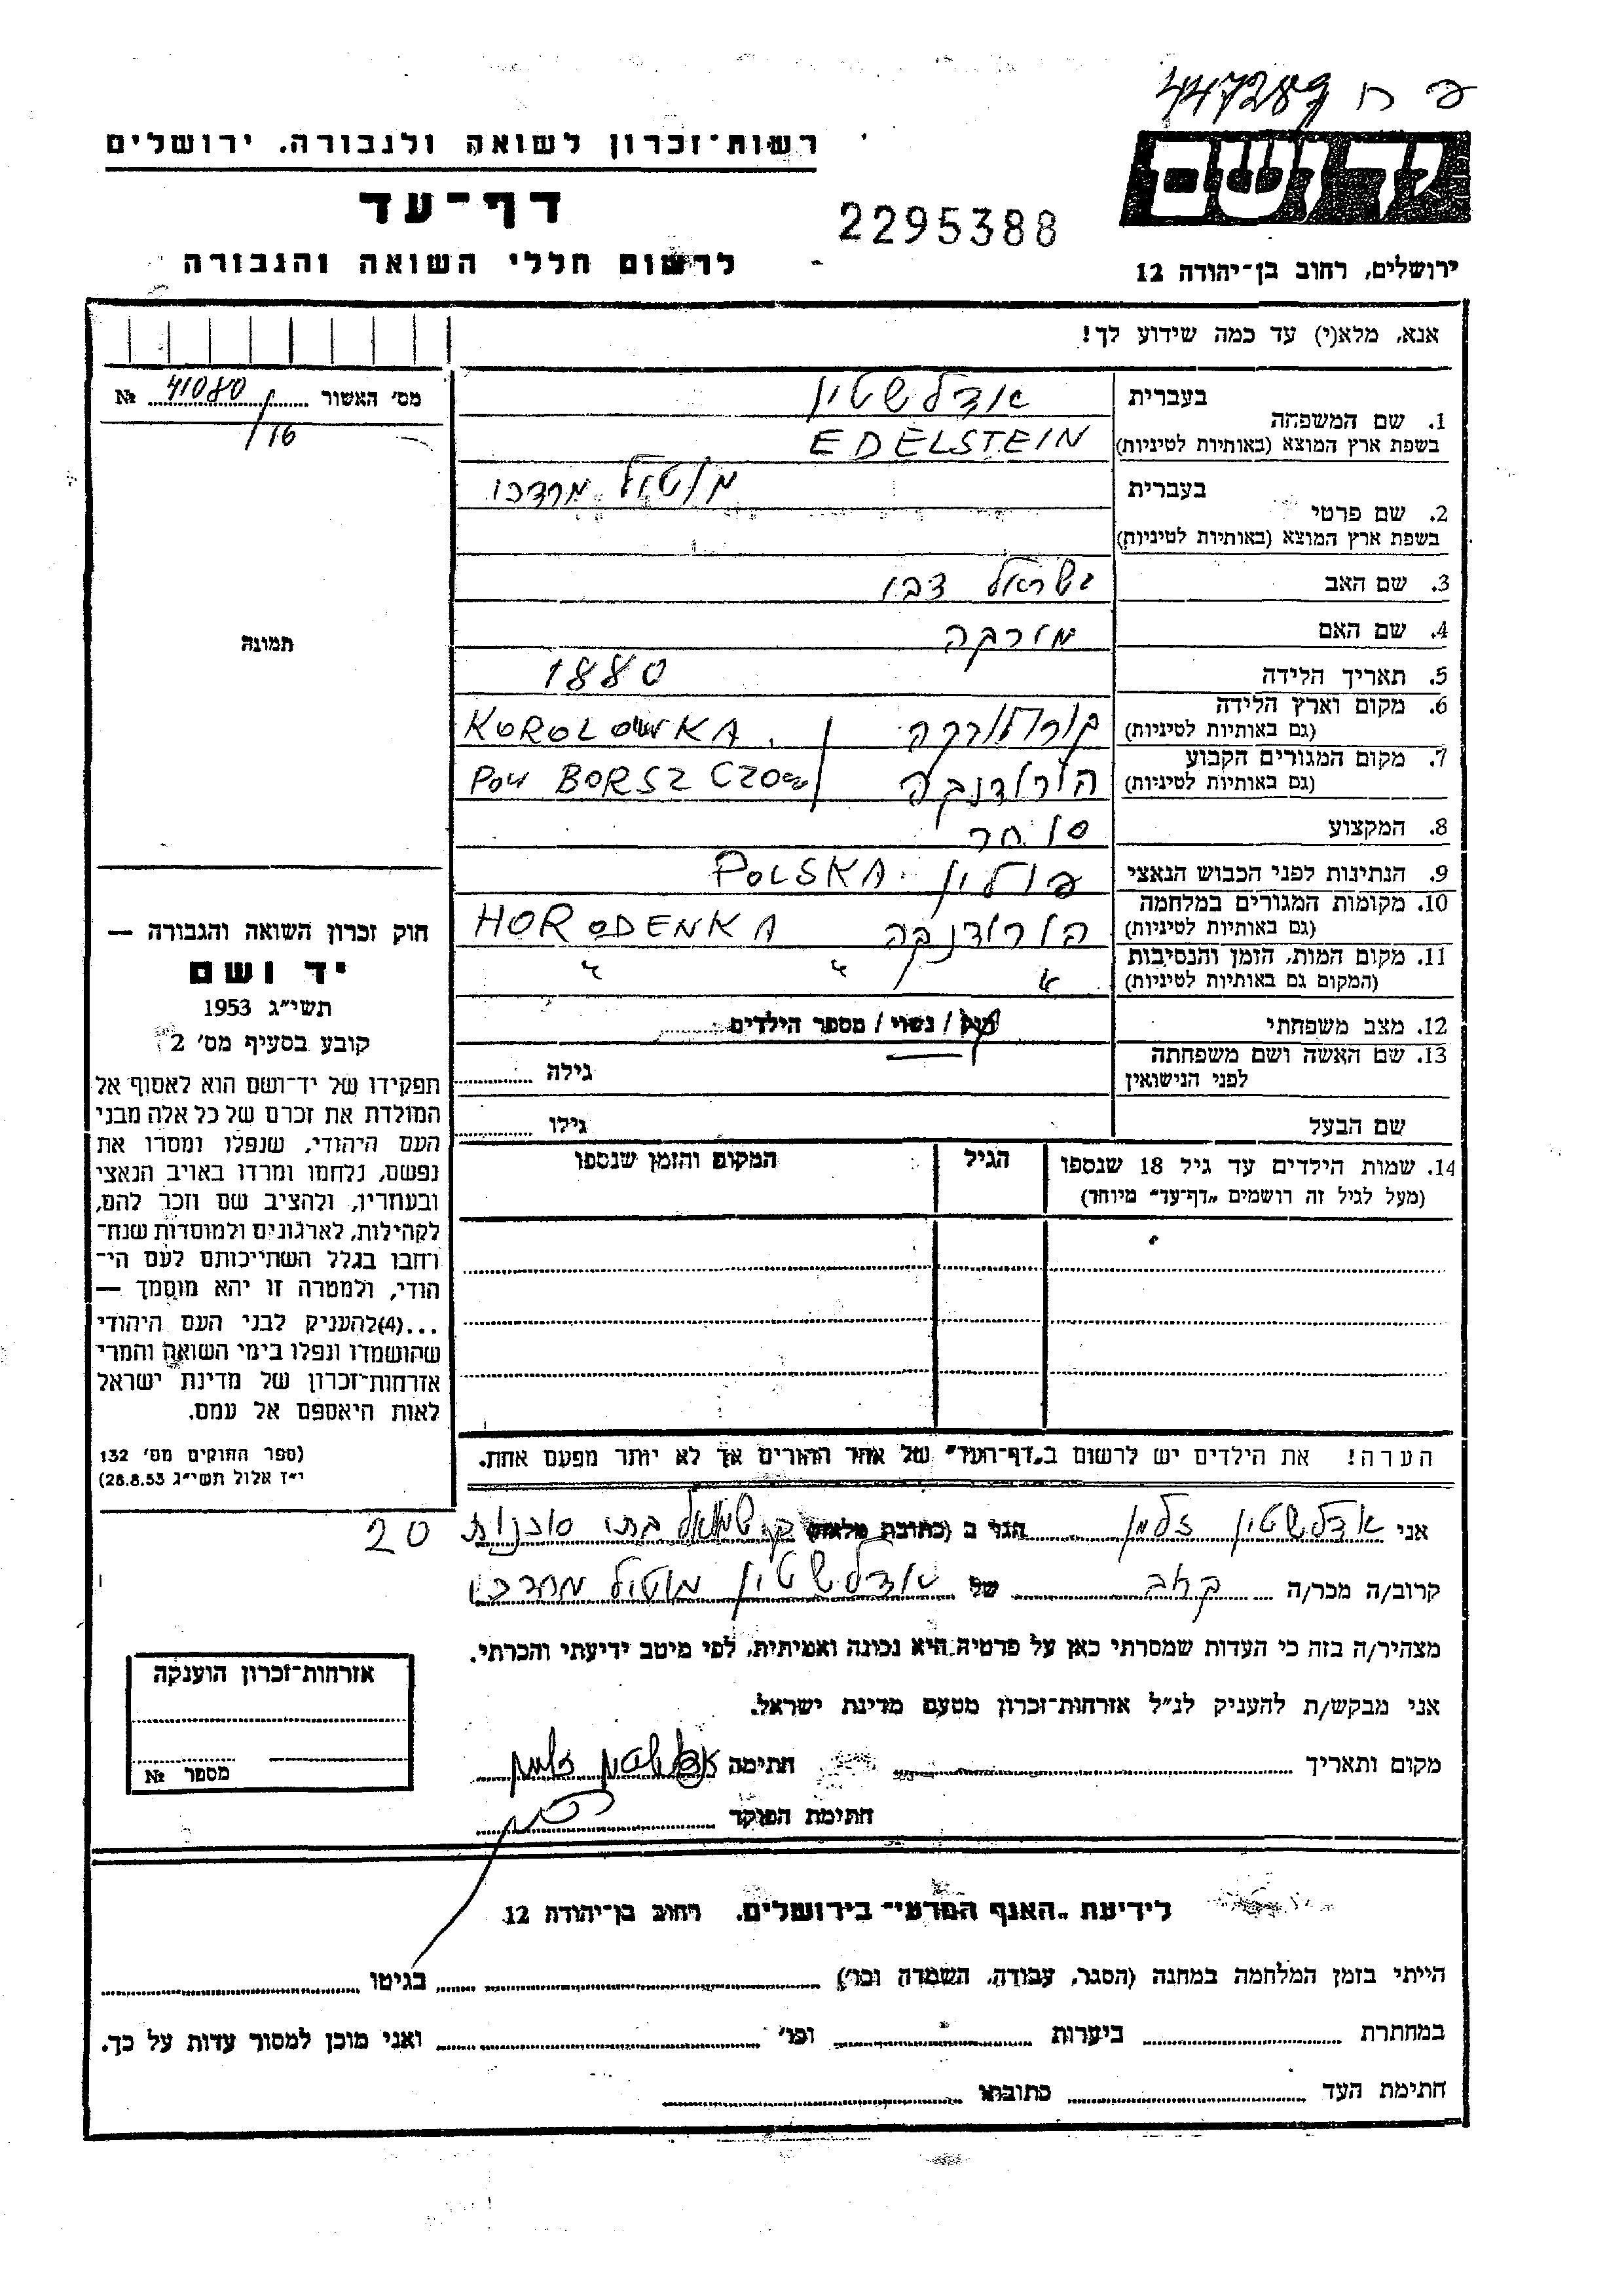 פ ח 447289
רשות־זכרון לשואה ולגבורה. ירושלים
יד ושם
דף־עד
2295388
לרשום חללי השואה והגבורה
ירושלים, רחוב בן־יהודה 12
אנא, מלא(י) עד כמה שידוע לך!
מס' האשור 41080 №
/16
בעברית אדלשטין
1. שם המשפחה
בשפת ארץ המוצא (באותיות לטיניות) EDELSTEIN
בעברית מוטיל מרדכי
2. שם פרטי
בשפת ארץ המוצא (באותיות לטיניות)
3. שם האב ישראל צבי
4. שם האם
תמונה
5. תאריך הלידה 1880
6. מקום וארץ הלידה
(גם באותיות לטיניות) KOROLOWKA
7. מקום המגורים הקבוע הורודנקה
(גם באותיות לטיניות) POW BORSZCZOW
8. המקצוע סוחר
9. הנתינות לפני הכבוש הנאצי פולין. POLSKA
10. מקומות המגורים במלחמה
(גם באותיות לטיניות) הורודנקה HORODENKA
11. מקום המות, הזמן והנסיבות
(המקום גם באותיות לטיניות) " " "
12. מצב משפחתי רווק / נשוי / מספר הילדים
13. שם האשה ושם משפחתה
לפני הנישואין גילה
שם הבעל גילו
14. שמות הילדים עד גיל 18 שנספו הגיל המקום והזמן שנספו
(מעל לגיל זה רושמים „דף־עד" מיוחד)
חוק זכרון השואה והגבורה —
יד ושם
תשי״ג 1953
קובע בסעיף מס' 2
תפקידו של יד־ושם הוא לאסוף אל
המולדת את זכרם של כל אלה מבני
העם היהודי, שנפלו ומסרו את
נפשם, נלחמו ומרדו באויב הנאצי
ובעוזריו, ולהציב שם וזכר להם,
לקהילות, לארגונים ולמוסדות שנח־
רחבו בגלל השתייכותם לעם הי־
הודי, ולמטרה זו יהא מוסמך —
...(4)להעניק לבני העם היהודי
שהושמדו ונפלו בימי השואה והמרי
אזרחות־זכרון של מדינת ישראל
לאות היאספם אל עמם.
(ספר החוקים מס' 132
י״ז אלול תשי״ג 28.8.53)
הערה! את הילדים יש לרשום ב„דף־העד" של אחד ההורים אך לא יותר מפעם אחת.
אני אדלשטין זלמן הגר ב (כתובת מלאה) שמואל בתי סוכנות 20
קרוב/ה מכר/ה של אדלשטין מוטיל מרדכי
מצהיר/ה בזה כי העדות שמסרתי כאן על פרטיה היא נכונה ואמיתית, לפי מיטב ידיעתי והכרתי.
אני מבקש/ת להעניק לנ״ל אזרחות־זכרון מטעם מדינת ישראל.
מקום ותאריך חתימה אדלשטין זלמן
חתימת הפוקד
אזרחות־זכרון הוענקה
מספר №
לידיעת „האגף המדעי" בירושלים. רחוב בן־יהודה 12
הייתי בזמן המלחמה במחנה (הסגר, עבודה, השמדה וכו') בגיטו
במחתרת ביערות וכו' ואני מוכן למסור עדות על כך.
חתימת העד כתובתו